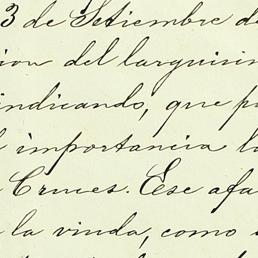 3 de Setiembre de
ion del larguisim
indicando, que p
importancia l
Cruces. Ese afa
la viuda, como